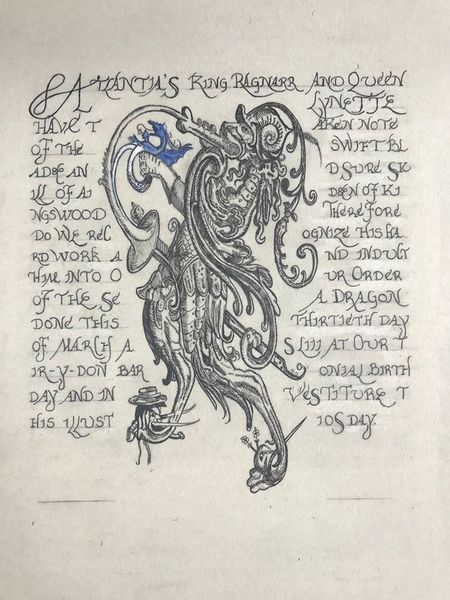 ATLANTIA'S KING RAGNARR AND QUEEN
LYNETTE
HAVE T AKEN NOTE
OF THE SWIFT BL
ADE AN D SURE SK
ILL OF AI DEN OF KI
NGSWOOD THEREFORE
DO WE REC OGNIZE HIS HA
RD WORK A ND INDUCT
HIM INTO O UR ORDER
OF THE SE A DRAGON
DONE THIS THIRTIETH DAY
OF MARCH A S LIII AT OUR T
IR-Y-DON BAR ONIAL BIRTH
DAY AND IN VESTITURE T
HIS ILLUST IOS DAY.